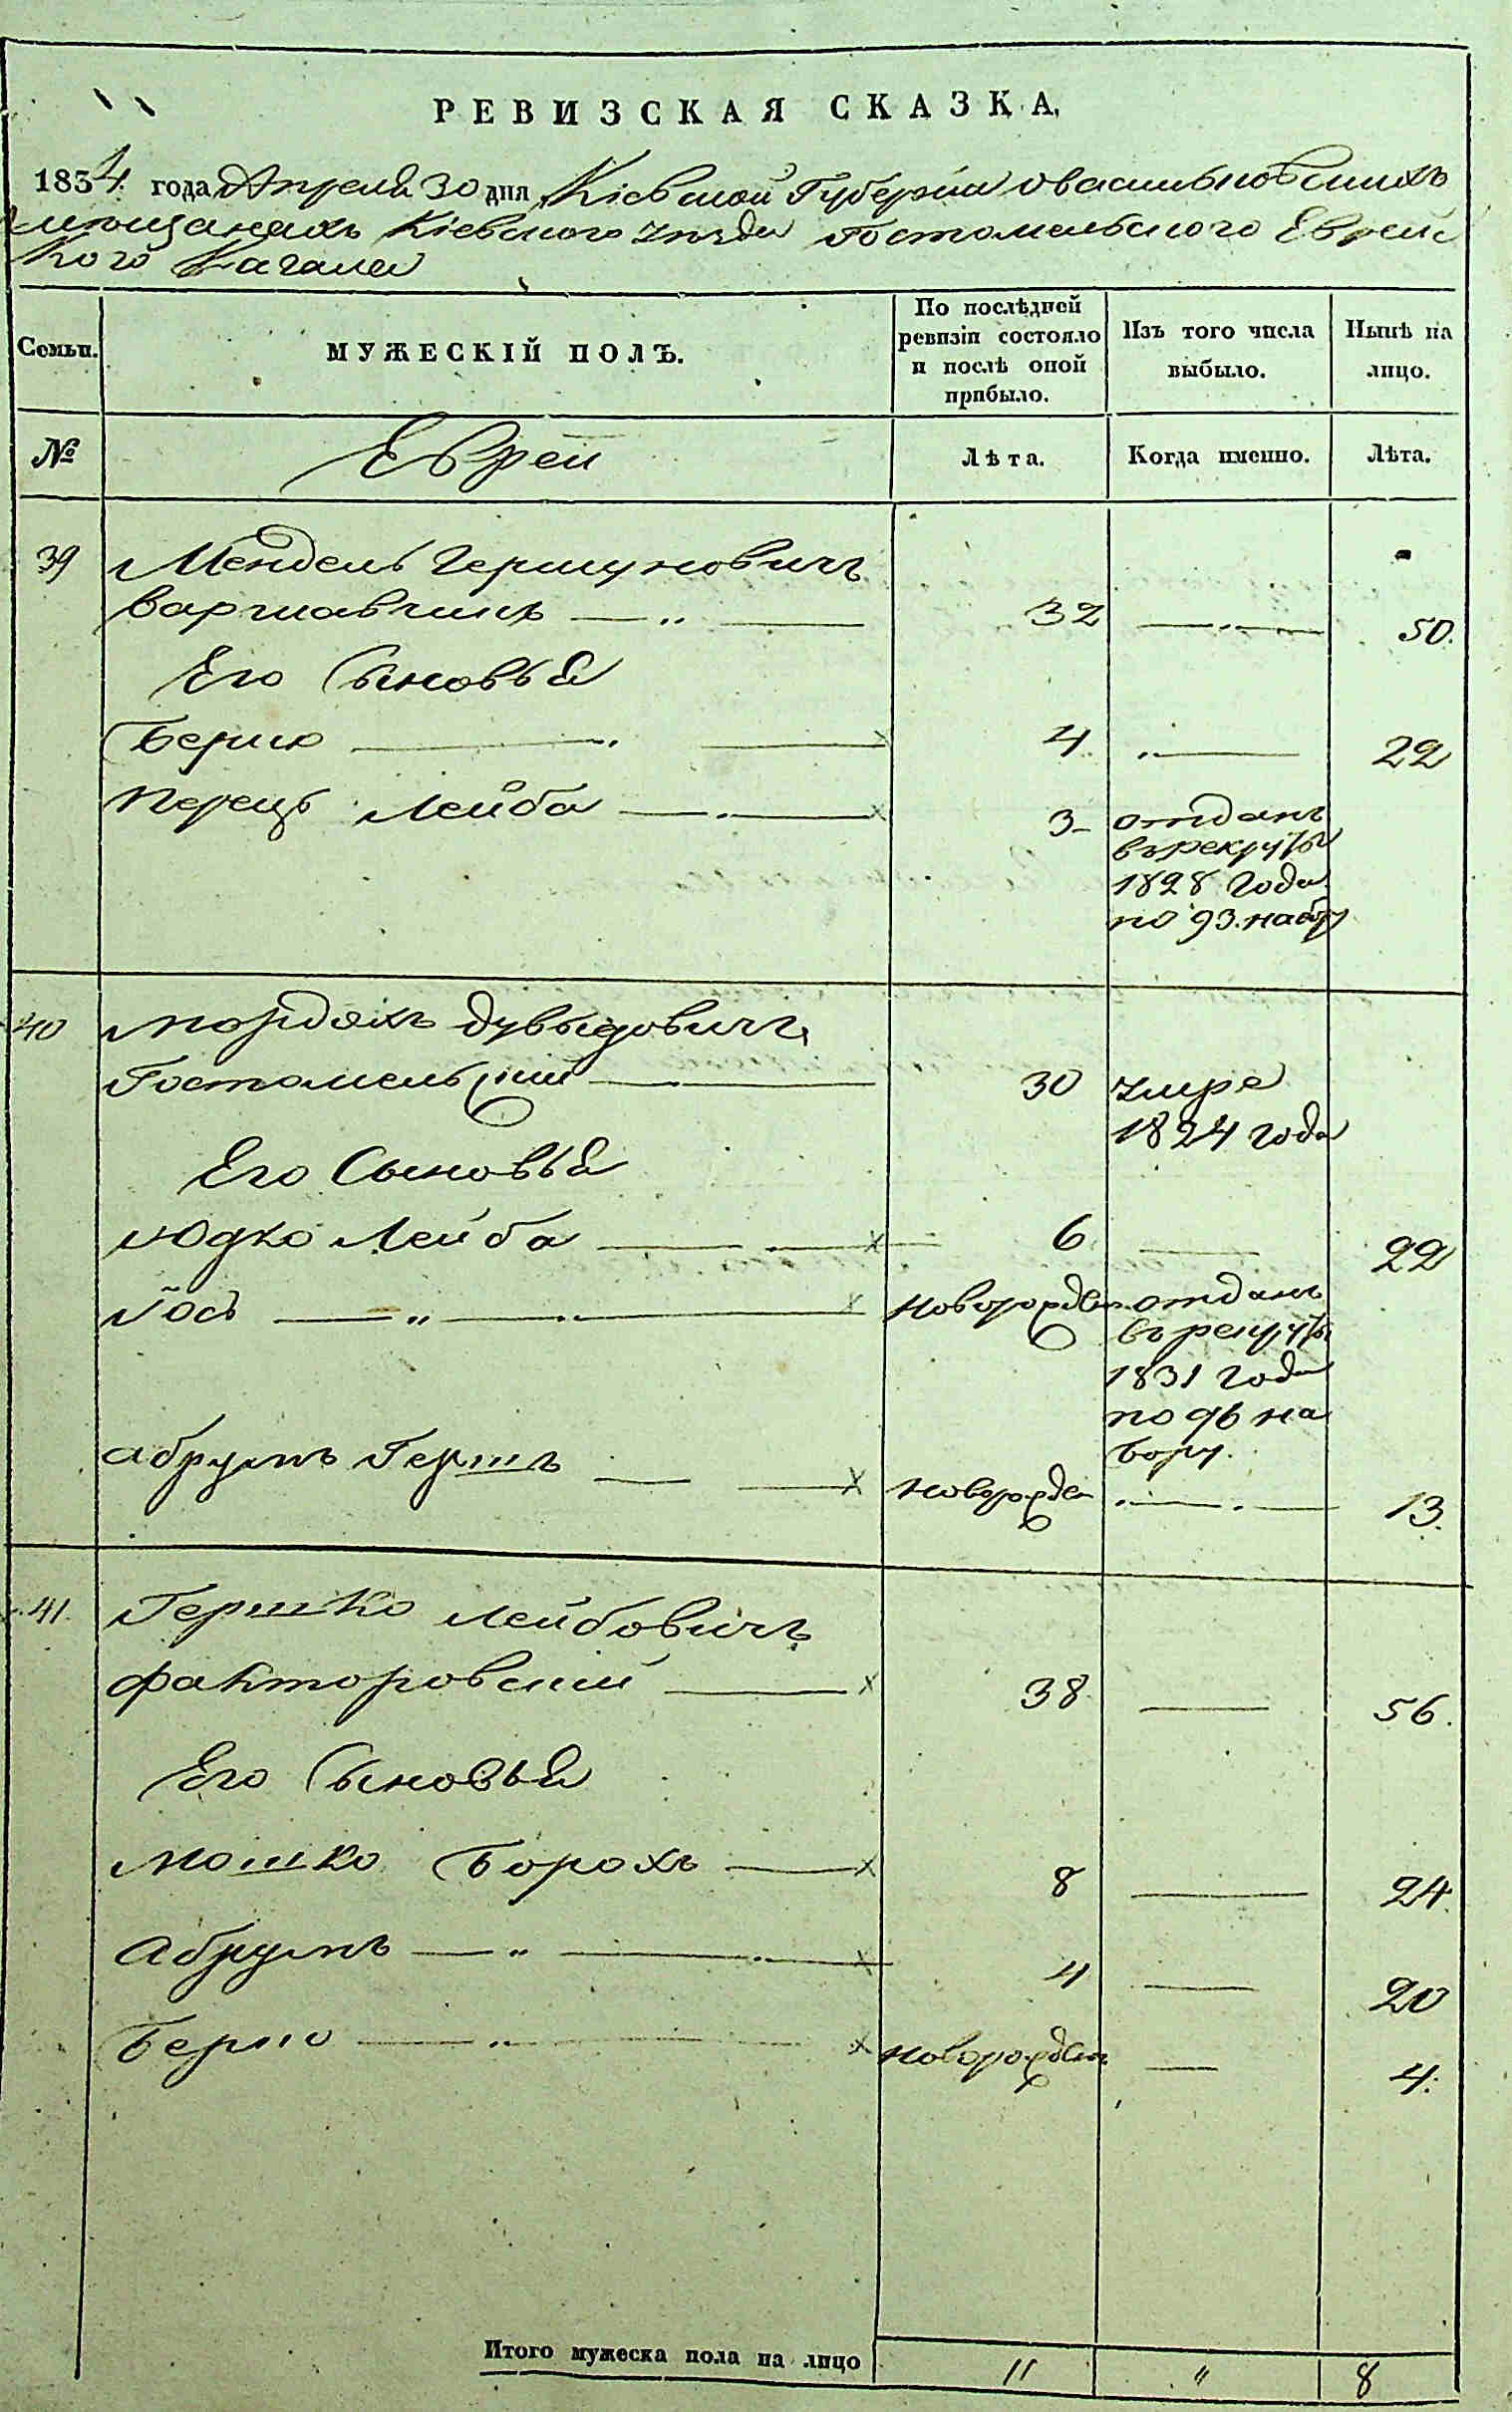 РЕВИЗСКАЯ СКАЗКА.
1834. года Апреля 30 дня Кіевской Губерніи о васильковскихъ
мещанахъ Кіевского уезда Гостомельского Еврейс
кого Кагала
Семьи.
МУЖЕСКІЙ ПОЛЪ.
По послѣдней ревизіи состояло и послѣ оной прибыло.
Изъ того числа выбыло.
Нынѣ на лицо.
№
Евреи
Лѣта.
Когда именно.
Лѣта.
39 Мендель Гершуновичъ
варшавчикъ — „ — 32 — 50.
Его Сыновья
Берко — 4. — 22
Перецъ Лейба — х 3 отданъ
въ рекруты
1828 года
по 93. набору
40 Мордохъ дувыдовичъ
Гостомельский — 30 умре
1824 года
Его Сыновья
Юдко Лейба — х 6 — 22
Йось — „ — х новорожден. отданъ
въ рекруты
1831 года
по 96 на
бору.
абрумъ Гершъ — х новорожден — 13.
41. Гершко лейбовичъ
факторовский — х 38. — 56.
Его Сыновья
мошко Борохъ — х 8 — 24.
Абрумъ — „ — х 4 — 20
Берко — „ — х новорожден — 4.
Итого мужеска пола на лицо 11 „ 8